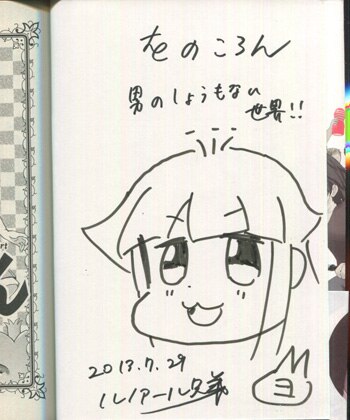 をのころん
男のしょうもない
世界!!
2013.7.29
ルノアール兄弟
ヨ
ん